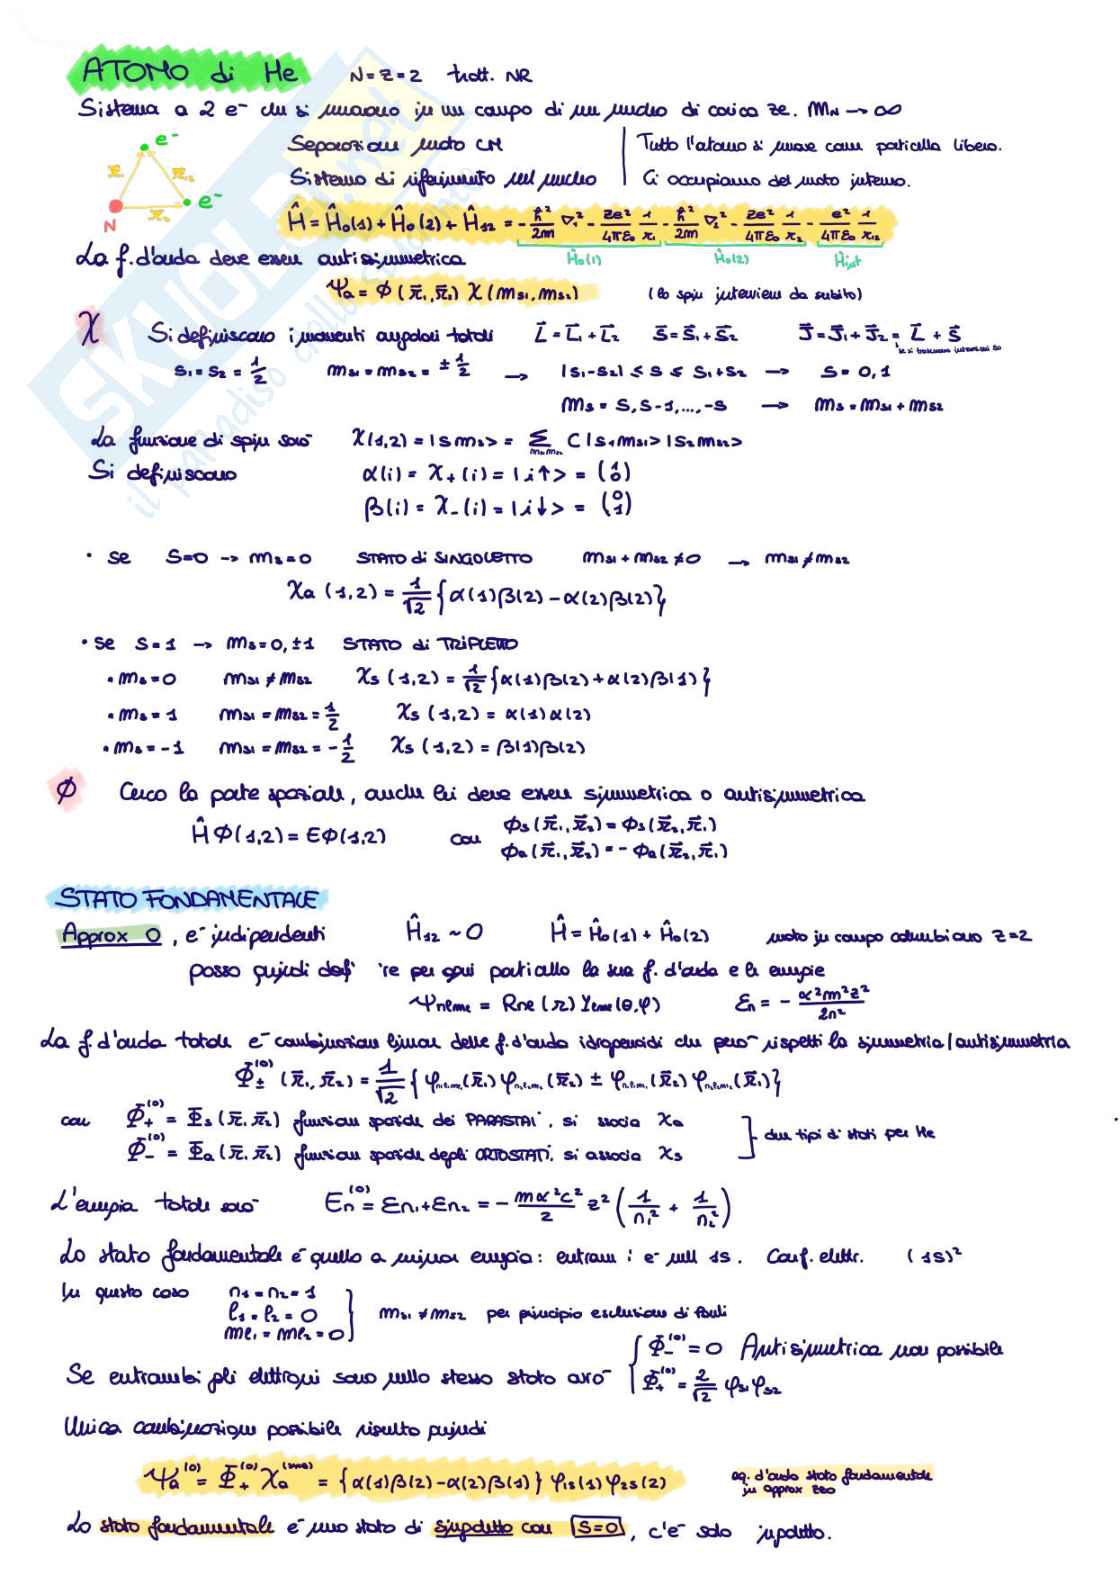 ATOMO di He N=Z=2 tratt. NR
Sistema a 2 e⁻ che si muovono in un campo di un nucleo di carica Ze. M_N → ∞
e⁻
r̄₁ r̄₁₂
e⁻
N r̄₂
Separazione moto CM | Tutto l'atomo si muove come particella libera.
Sistema di riferimento nel nucleo | Ci occupiamo del moto interno.
Ĥ = Ĥ₀(1) + Ĥ₀(2) + Ĥ₁₂ = -ħ²/2m ∇₁² - Ze²/4πε₀ 1/r₁ - ħ²/2m ∇₂² - Ze²/4πε₀ 1/r₂ - e²/4πε₀ 1/r₁₂
Ĥ₀(1) Ĥ₀(2) Ĥint
La f. d'onda deve essere antisimmetrica
Ψa = Φ(r̄₁, r̄₂) χ(ms1, ms2) (lo spin interviene da subito)
χ Si definiscono i momenti angolari totali L⃗ = L⃗₁ + L⃗₂ S⃗ = S⃗₁ + S⃗₂ J⃗ = J⃗₁ + J⃗₂ = L⃗ + S⃗
s₁ = s₂ = 1/2 ms1 = ms2 = ± 1/2 → |s₁-s₂| ≤ s ≤ s₁+s₂ → s = 0, 1
ms = s, s-1, ..., -s → ms = ms1 + ms2
La funzione di spin sarà χ(1,2) = |s ms> = Σ C |s₁ms1> |s₂ms2>
Si definiscono α(i) = χ₊(i) = |i↑> = (1 0)
β(i) = χ₋(i) = |i↓> = (0 1)
• Se S=0 -> ms=0 STATO di SINGOLETTO ms1 + ms2 ≠ 0 → ms1 ≠ ms2
χa (1,2) = 1/√2 {α(1)β(2) - α(2)β(2)}
• Se S=1 → ms=0, ±1 STATO di TRIPLETTO
• ms=0 ms1 ≠ ms2 χs (1,2) = 1/√2 {α(1)β(2) + α(2)β(1)}
• ms=1 ms1 = ms2 = 1/2 χs (1,2) = α(1)α(2)
• ms=-1 ms1 = ms2 = -1/2 χs (1,2) = β(1)β(2)
Φ Cerco la parte spaziale, anche lei deve essere simmetrica o antisimmetrica
ĤΦ(1,2) = EΦ(1,2) con Φs(r̄₁, r̄₂) = Φs(r̄₂, r̄₁)
Φa(r̄₁, r̄₂) = -Φa(r̄₂, r̄₁)
STATO FONDAMENTALE
Approx 0, e⁻ indipendenti Ĥ₁₂ ~ 0 Ĥ = Ĥ₀(1) + Ĥ₀(2) moto in campo coulombiano Z=2
posso quindi def 're per ogni particella la sua f. d'onda e le energie
Ψnlme = Rne(r) Yeme(θ,φ) En = - α²m²z²/2n²
La f. d'onda totale è combinazione lineare delle f. d'onda idrogenoidi che però rispetti la simmetria/antisimmetria
Φ±⁽⁰⁾ (r̄₁, r̄₂) = 1/√2 {φn₁l₁m₁(r̄₁) φn₂l₂m₂(r̄₂) ± φn₁l₁m₁(r̄₂) φn₂l₂m₂(r̄₁)}
con Φ₊⁽⁰⁾ = Φs(r̄₁, r̄₂) funzione spaziale dei PARASTATI, si associa χa
Φ₋⁽⁰⁾ = Φa(r̄₁, r̄₂) funzione spaziale degli ORTOSTATI, si associa χs
due tipi di stati per He
L'energia totale sarà En⁽⁰⁾ = En₁ + En₂ = - mα²c²/2 z² (1/n₁² + 1/n₂²)
Lo stato fondamentale è quello a minor energia: entrambi e⁻ nell 1s. Conf. elettr. (1s)²
In questo caso n₁ = n₂ = 1
l₁ = l₂ = 0
ml₁ = ml₂ = 0
ms1 ≠ ms2 per principio esclusione di Pauli
Se entrambi gli elettroni sono nello stesso stato avrò Φ₋⁽⁰⁾ = 0 Antisimmetrica non possibile
Φ₊⁽⁰⁾ = 2/√2 φs1 φs2
Unica combinazione possibile risulta quindi
Ψa⁽⁰⁾ = Φ₊⁽⁰⁾ χa⁽ᵐˢ⁼⁰⁾ = {α(1)β(2) - α(2)β(1)} φ1s(1) φ2s(2) eq. d'onda stato fondamentale
in approx zero
Lo stato fondamentale è uno stato di singoletto con S=0, c'è solo singoletto.
SKUOLA.net
il paradiso dello studente